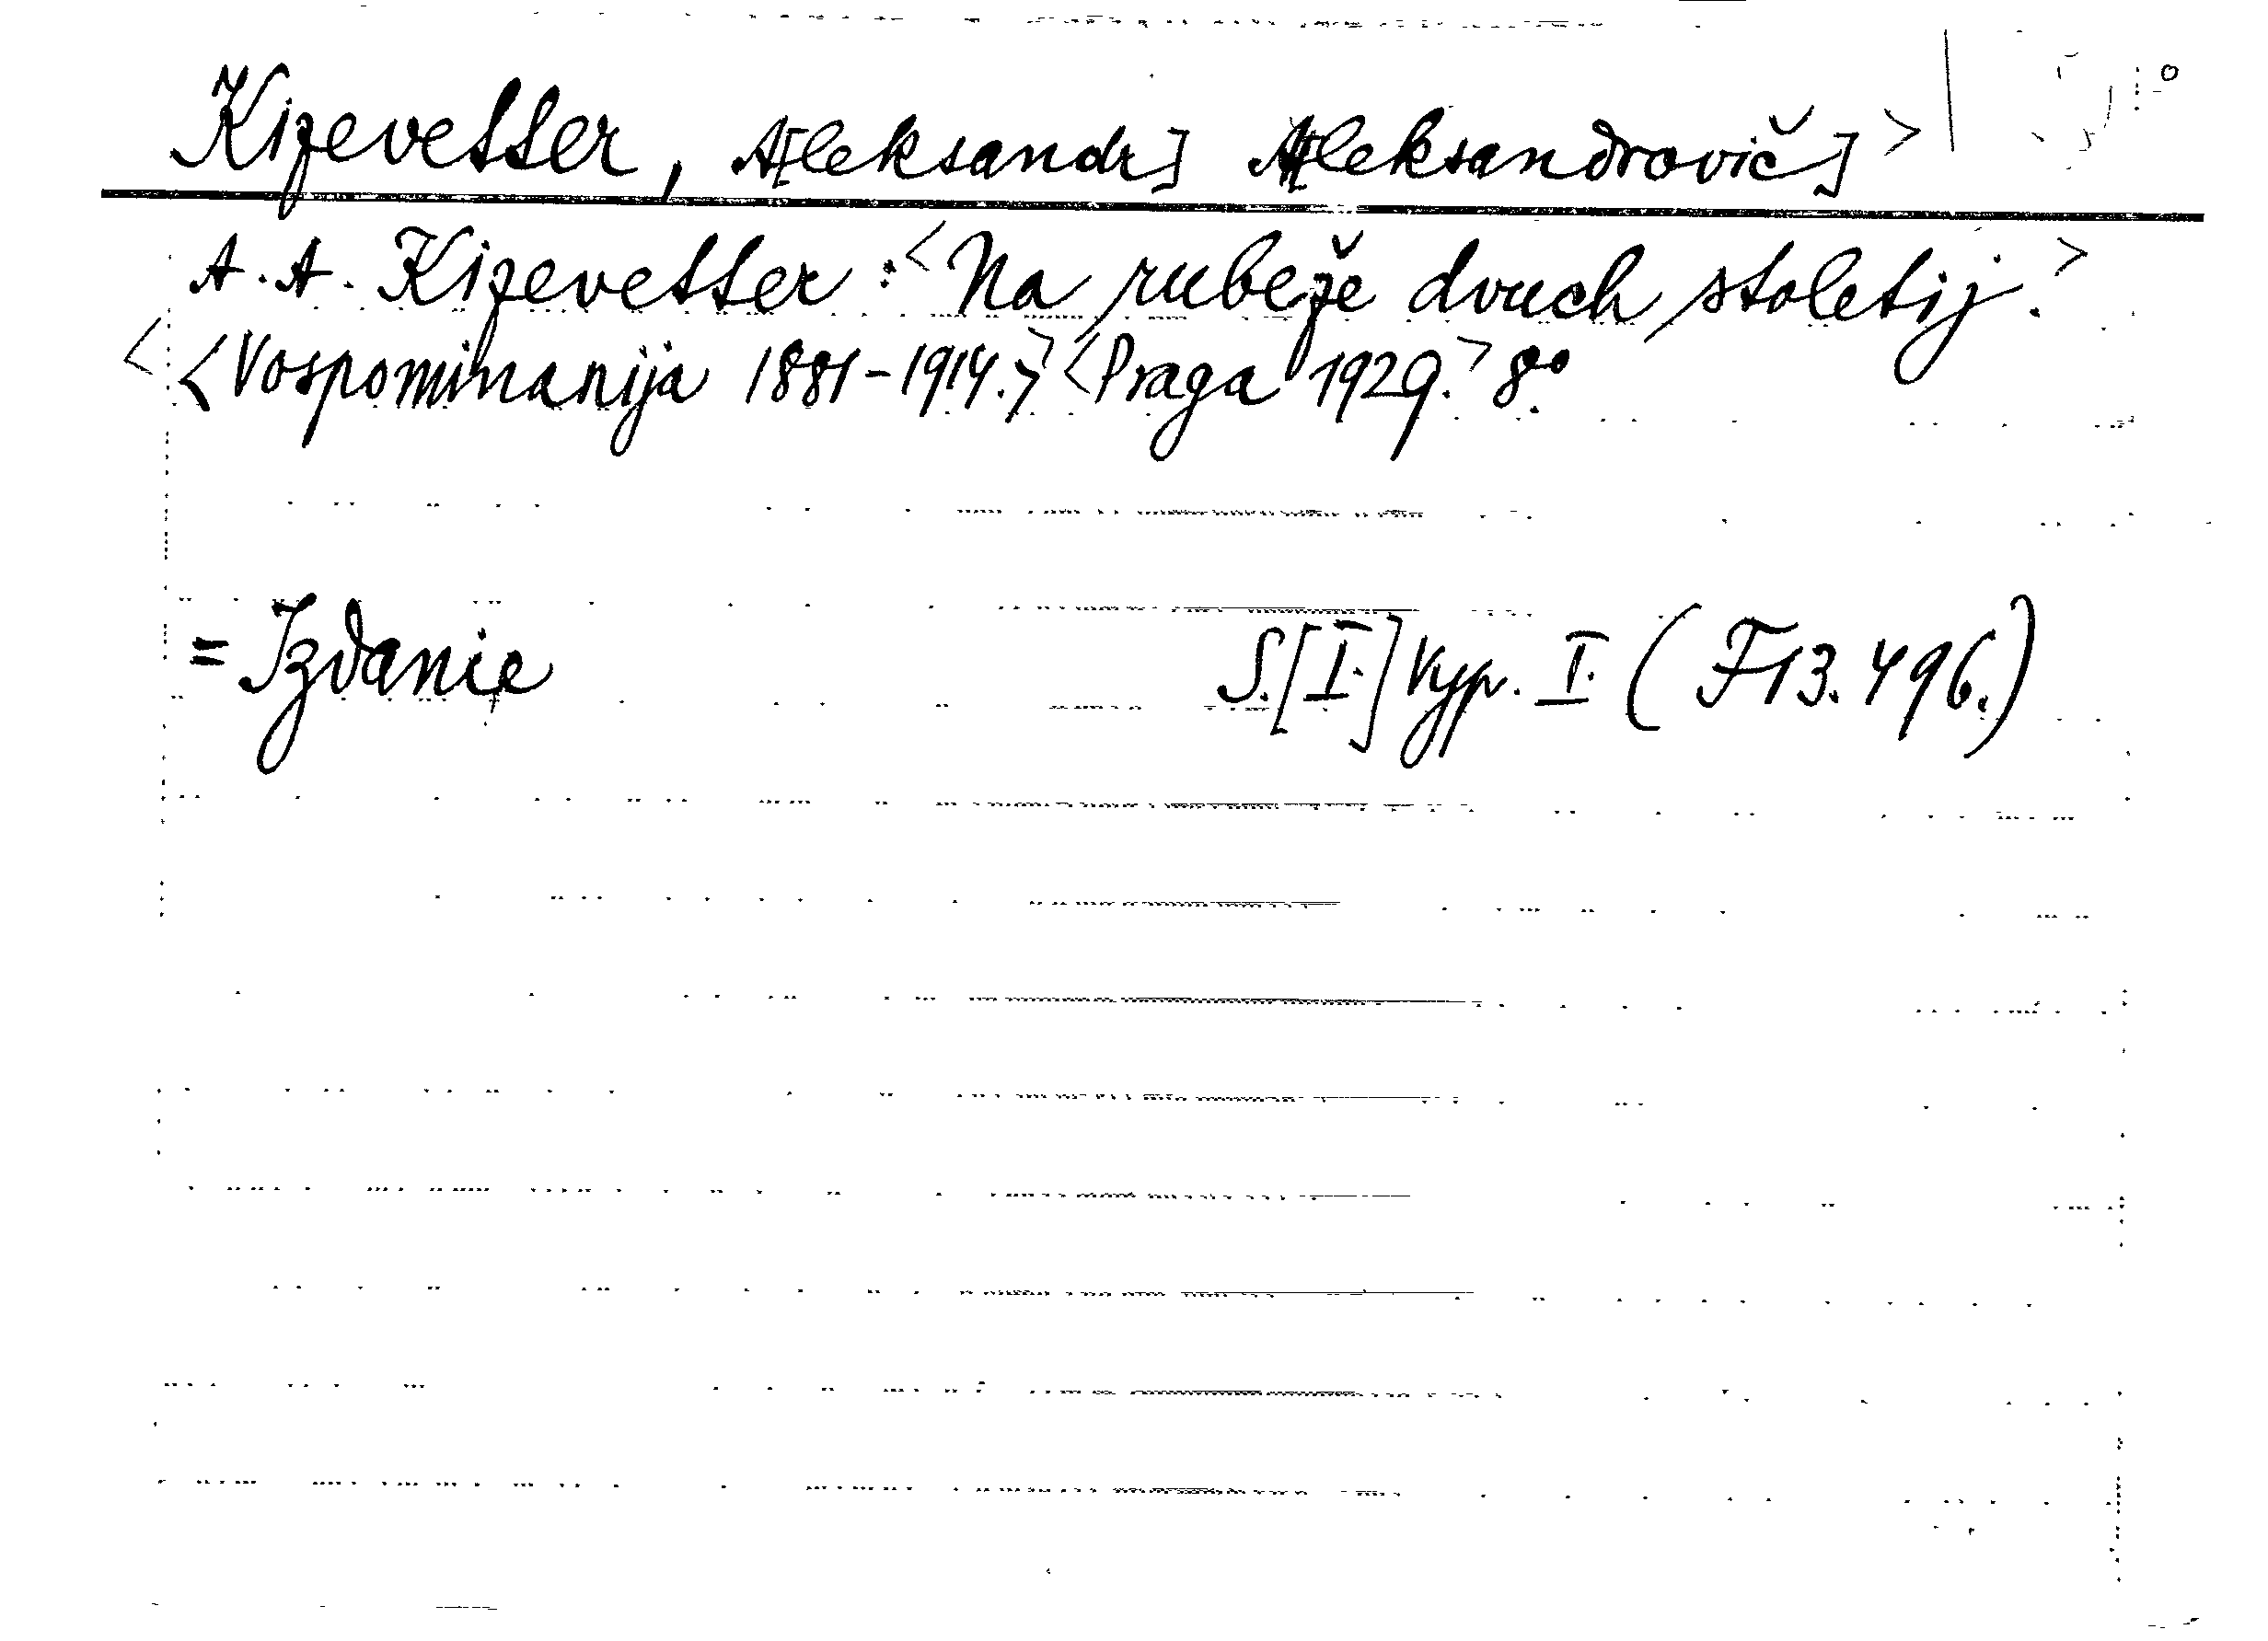 Kizevetter, A[leksandr] A[leksandrovič] >
A. A. Kizevetter: <Na rubeže dvuch stoletij.>
< <Vospominanija 1881-1914.>> <Praga 1929.> 8º.
= Izdanie S.[I.] Vyp. I. (F13.496.)